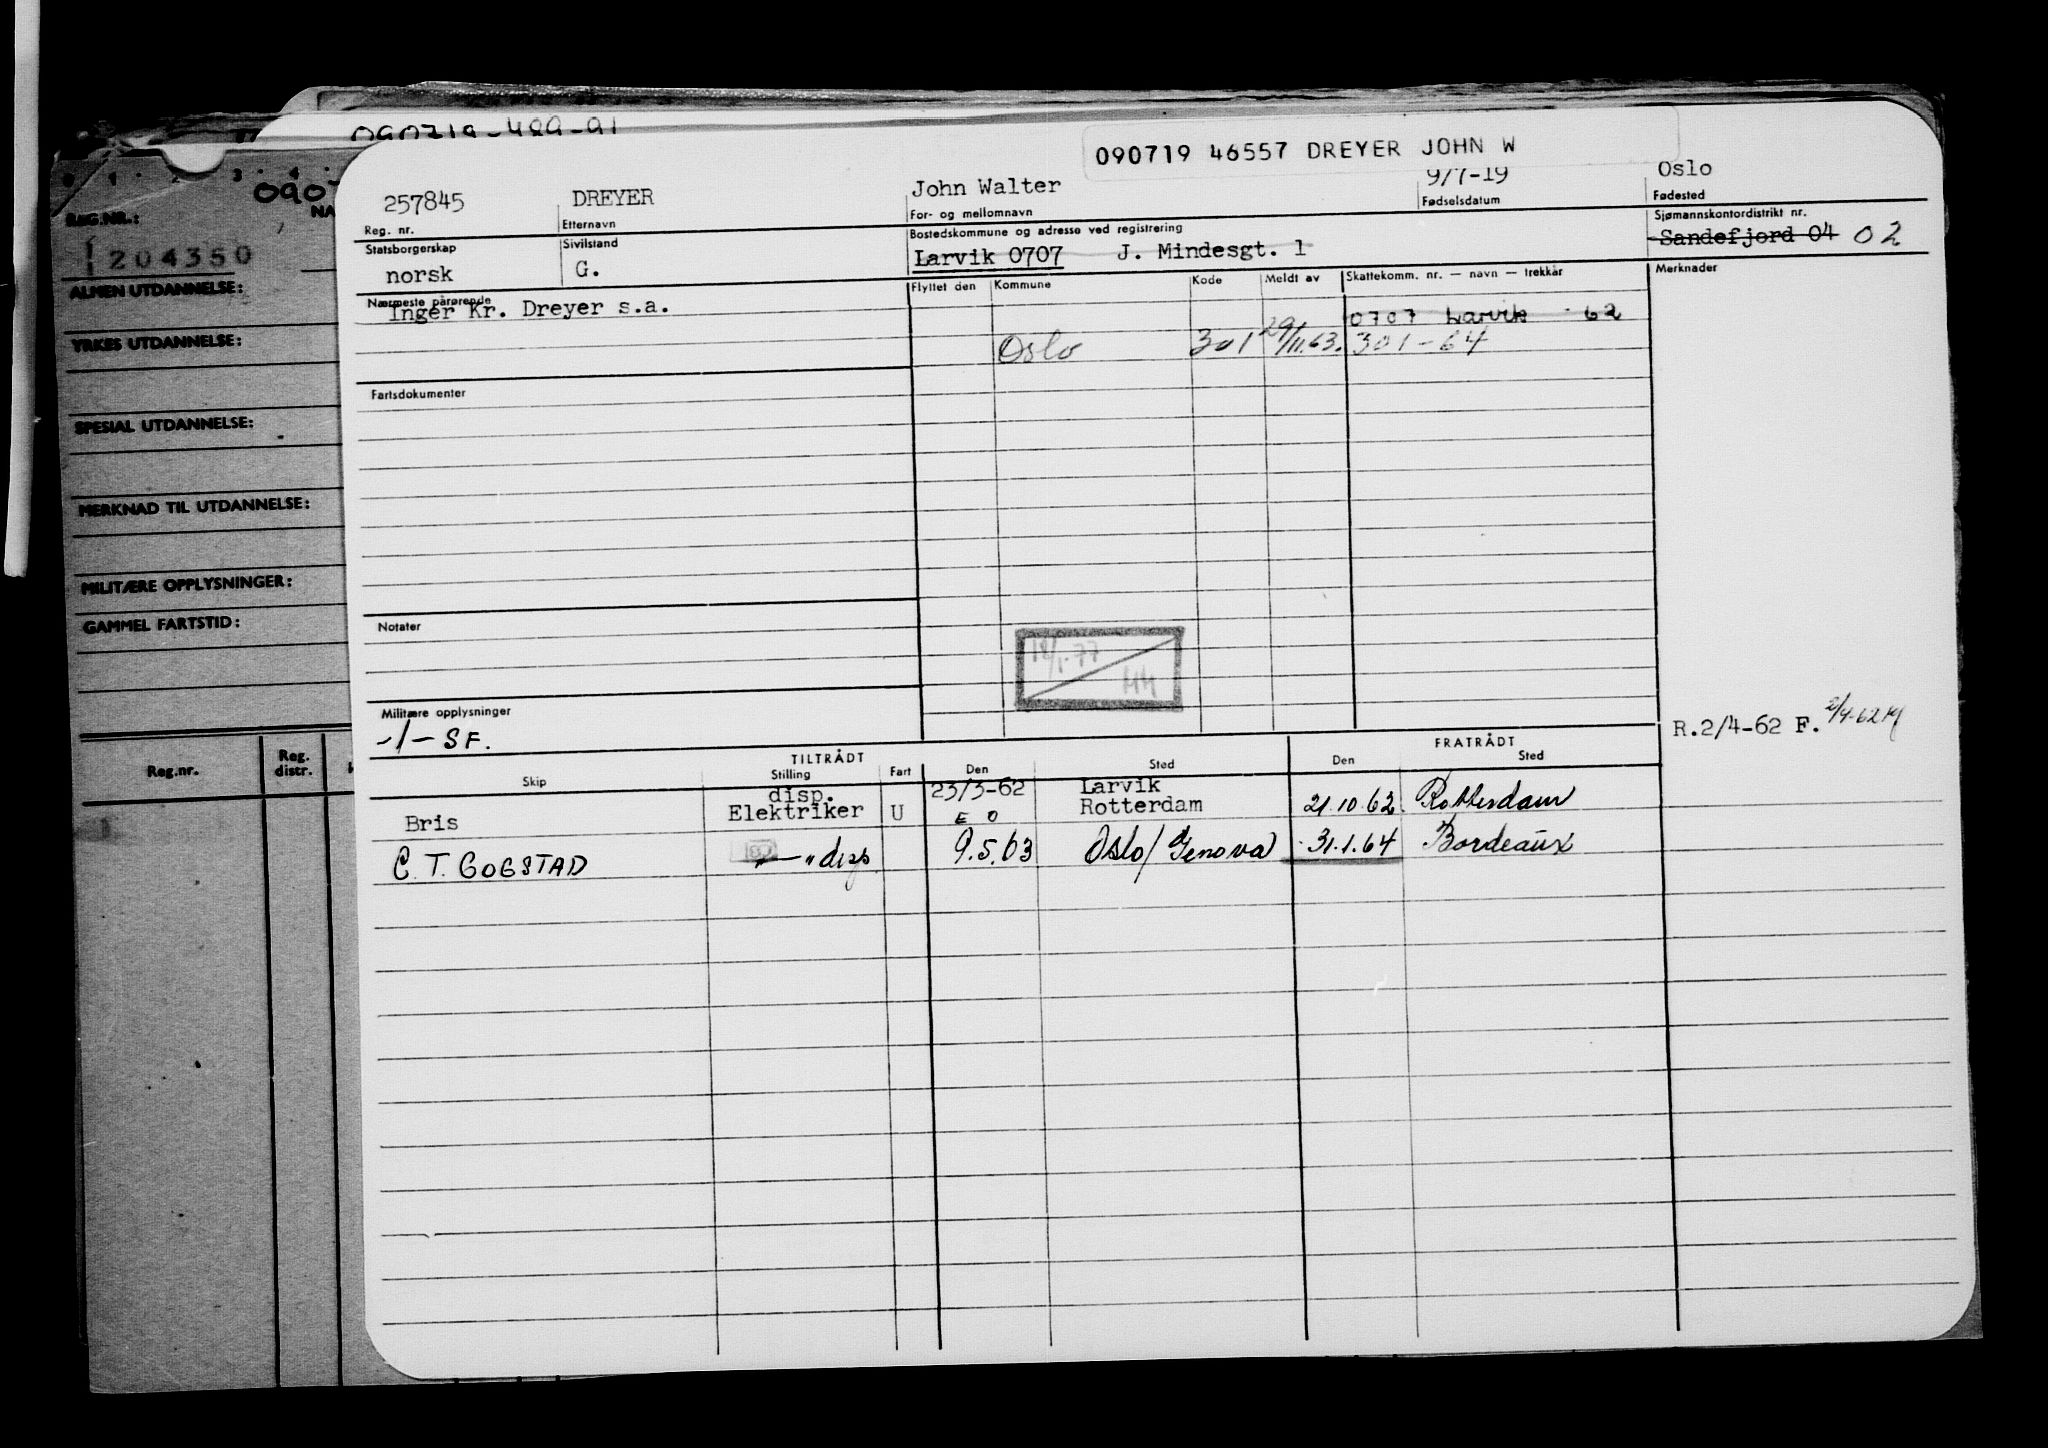 090719-489-91
090719 46557 DREYER JOHN W
257845 DREYER John Walter 9/7-19 Oslo
Reg. nr. Etternavn For- og mellomnavn Fødselsdatum Fødested
Statsborgerskap Sivilstand Bostedskommune og adresse ved registrering Sjømannskontordistrikt nr.
norsk G. Larvik 0707 J. Mindesgt. 1 Sandefjord 04 02
Nærmeste pårørende Flyttet den Kommune Kode Meldt av Skattekomm. nr. — navn — trekkår Merknader
Inger Kr. Dreyer s.a. 0707 Larvik 62
Oslo 301 29/11.63. 301-64
Fartsdokumenter
Notater
18/1-77
HH
Militære opplysninger
-1-SF. R.2/4-62 F.
TILTRÅDT FRATRÅDT
Skip Stilling Fart Den Sted Den Sted
disp. 23/3-62 Larvik
Bris Elektriker U E O Rotterdam 21.10.62 Rotterdam
C. T. GOGSTAD "—" disp 9.5.63 Oslo/Genova 31.1.64 Bordeaux
0 1 2 3 4
090
REG.NR.: NA
204350
ALMEN UTDANNELSE:
YRKES UTDANNELSE:
SPESIAL UTDANNELSE:
MERKNAD TIL UTDANNELSE:
MILITÆRE OPPLYSNINGER:
GAMMEL FARTSTID:
Reg.nr. Reg. distr.